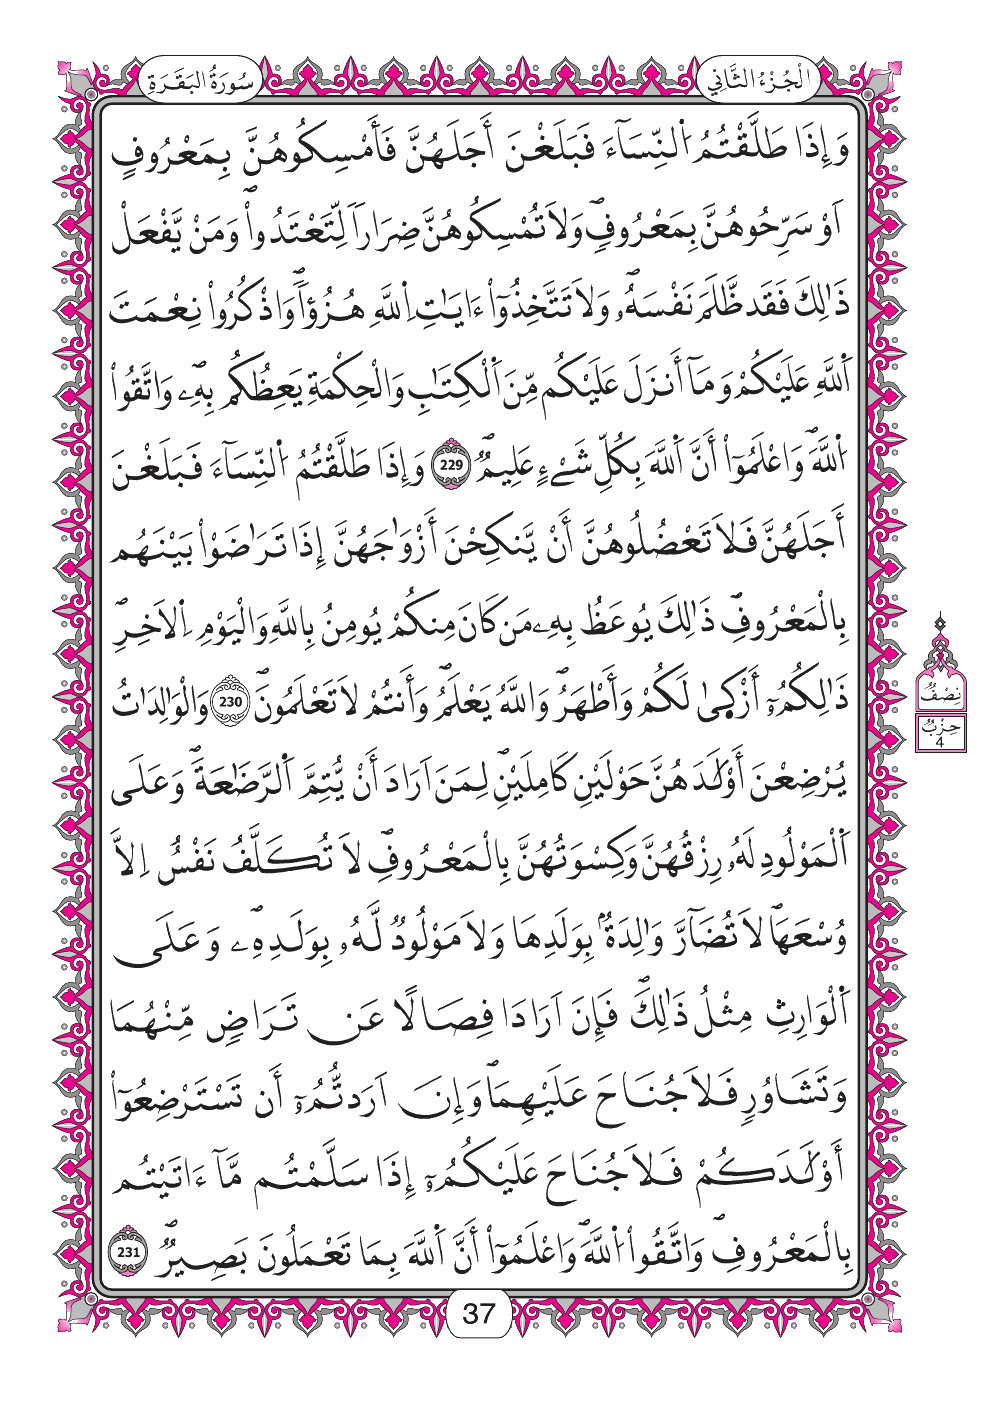 الْجُزْءُ الثَّانِي
سُورَةُ الْبَقَرَةِ
وَإِذَا طَلَّقْتُمُ اُ۬لنِّسَآءَ فَبَلَغْنَ أَجَلَهُنَّ فَأَمْسِكُوهُنَّ بِمَعْرُوفٍ
اَوْ سَرِّحُوهُنَّ بِمَعْرُوفٖۖ وَلَا تُمْسِكُوهُنَّ ضِرَاراٗ لِّتَعْتَدُواْۖ وَمَنْ يَّفْعَلْ
ذَٰلِكَ فَقَد ظَّلَمَ نَفْسَهُۥۖ وَلَا تَتَّخِذُوٓاْ ءَايَٰتِ اِ۬للَّهِ هُزُؤاٗۖ وَاذْكُرُواْ نِعْمَتَ
اَ۬للَّهِ عَلَيْكُمْ وَمَآ أَنزَلَ عَلَيْكُم مِّنَ اَ۬لْكِتَٰبِ وَالْحِكْمَةِ يَعِظُكُم بِهِۦۖ وَاتَّقُواْ
اُ۬للَّهَۖ وَاعْلَمُوٓاْ أَنَّ اَ۬للَّهَ بِكُلِّ شَےْءٍ عَلِيمٞۖ 229 وَإِذَا طَلَّقْتُمُ اُ۬لنِّسَآءَ فَبَلَغْنَ
أَجَلَهُنَّ فَلَا تَعْضُلُوهُنَّ أَنْ يَّنكِحْنَ أَزْوَٰجَهُنَّ إِذَا تَرَٰضَوْاْ بَيْنَهُم
بِالْمَعْرُوفِۖ ذَٰلِكَ يُوعَظُ بِهِۦ مَن كَانَ مِنكُمْ يُومِنُ بِاللَّهِ وَالْيَوْمِ اِ۬لَاخِرِۖ
ذَٰلِكُمُۥٓ أَزْكَىٰ لَكُمْ وَأَطْهَرُۖ وَاللَّهُ يَعْلَمُۖ وَأَنتُمْ لَا تَعْلَمُونَۖ 230 وَالْوَٰلِدَٰتُ
يُرْضِعْنَ أَوْلَٰدَهُنَّ حَوْلَيْنِ كَامِلَيْنِۖ لِمَنَ اَرَادَ أَنْ يُّتِمَّ اَ۬لرَّضَٰعَةَۖ وَعَلَى
اَ۬لْمَوْلُودِ لَهُۥ رِزْقُهُنَّ وَكِسْوَتُهُنَّ بِالْمَعْرُوفِۖ لَا تُكَلَّفُ نَفْسٌ اِلَّا
وُسْعَهَاۖ لَا تُضَآرَّ وَٰلِدَةُۢ بِوَلَدِهَا وَلَا مَوْلُودٞ لَّهُۥ بِوَلَدِهِۦۖ وَعَلَى
اَ۬لْوَارِثِ مِثْلُ ذَٰلِكَۖ فَإِنَ اَرَادَا فِصَالًا عَن تَرَاضٖ مِّنْهُمَا
وَتَشَاوُرٖ فَلَا جُنَاحَ عَلَيْهِمَاۖ وَإِنَ اَرَدتُّمُۥٓ أَن تَسْتَرْضِعُوٓاْ
أَوْلَٰدَكُمْ فَلَا جُنَاحَ عَلَيْكُمُۥٓ إِذَا سَلَّمْتُم مَّآ ءَاتَيْتُم
بِالْمَعْرُوفِۖ وَاتَّقُواْ اُ۬للَّهَۖ وَاعْلَمُوٓاْ أَنَّ اَ۬للَّهَ بِمَا تَعْمَلُونَ بَصِيرٞۖ 231
نِصْفُ
حِزْبُ
4
37